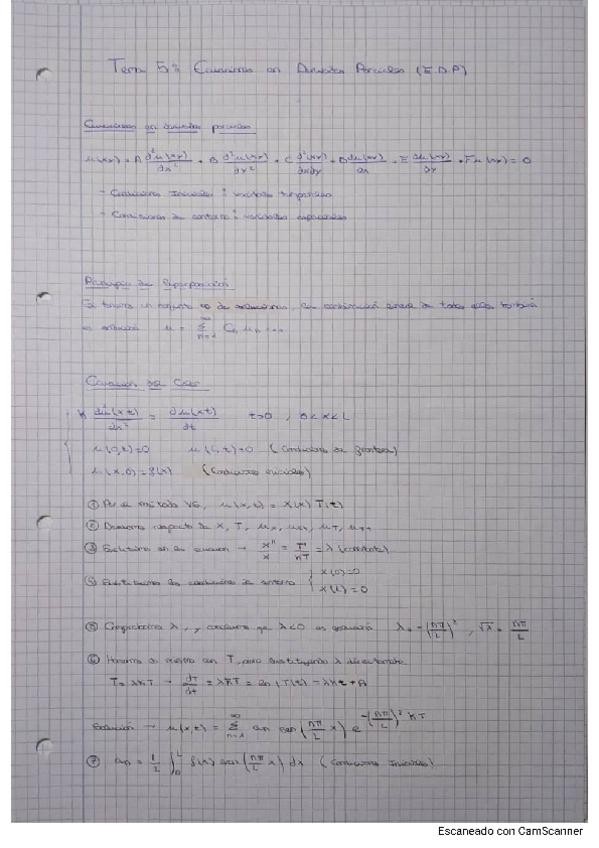 Tema 5: Ecuaciones en Derivadas Parciales (E.D.P)
Ecuaciones en derivadas parciales
u(x,y) = A d²u(x,y)/dx² + B d²u(x,y)/dy² + C d²(x,y)/dxdy + D du(x,y)/dx + E du(x,y)/dy + F u(x,y) = 0
- Condiciones Iniciales: variables temporales
- Condiciones de contorno: variables espaciales
Principio de Superposición
Si tenemos un conjunto ∞ de soluciones, la combinación lineal de todas ellas también
es solución u = Σ n=1 ∞ Cn un
Ecuación del Calor
K d²u(x,t)/dx² = du(x,t)/dt t>0 , 0<x<L
u(0,t)=0 u(L,t)=0 (Condiciones de frontera)
u(x,0)=f(x) (Condiciones iniciales)
① Por el método VS, u(x,t) = X(x) T(t)
② Derivamos respecto de X, T, ux, uxx, uT, uTT
③ Sustituimos en la ecuación → X''/X = T'/KT = λ (constante)
④ Sustituimos las condiciones de contorno { X(0)=0
X(L)=0
⑤ Comprobamos λ, y concluimos que λ<0 es solución λ = -(nπ/L)², √λ = nπ/L
⑥ Hacemos lo mismo con T, pero sustituyendo λ
T = λKT → dT/dt = λKT = ln(T(t)) = λKt + A
Solución → u(x,t) = Σ n=1 ∞ an sen(nπ/L x) e^-(nπ/L)² KT
⑦ an = 1/2 ∫0 L f(x) sen(nπ/L x) dx (Condiciones Iniciales)
Escaneado con CamScanner